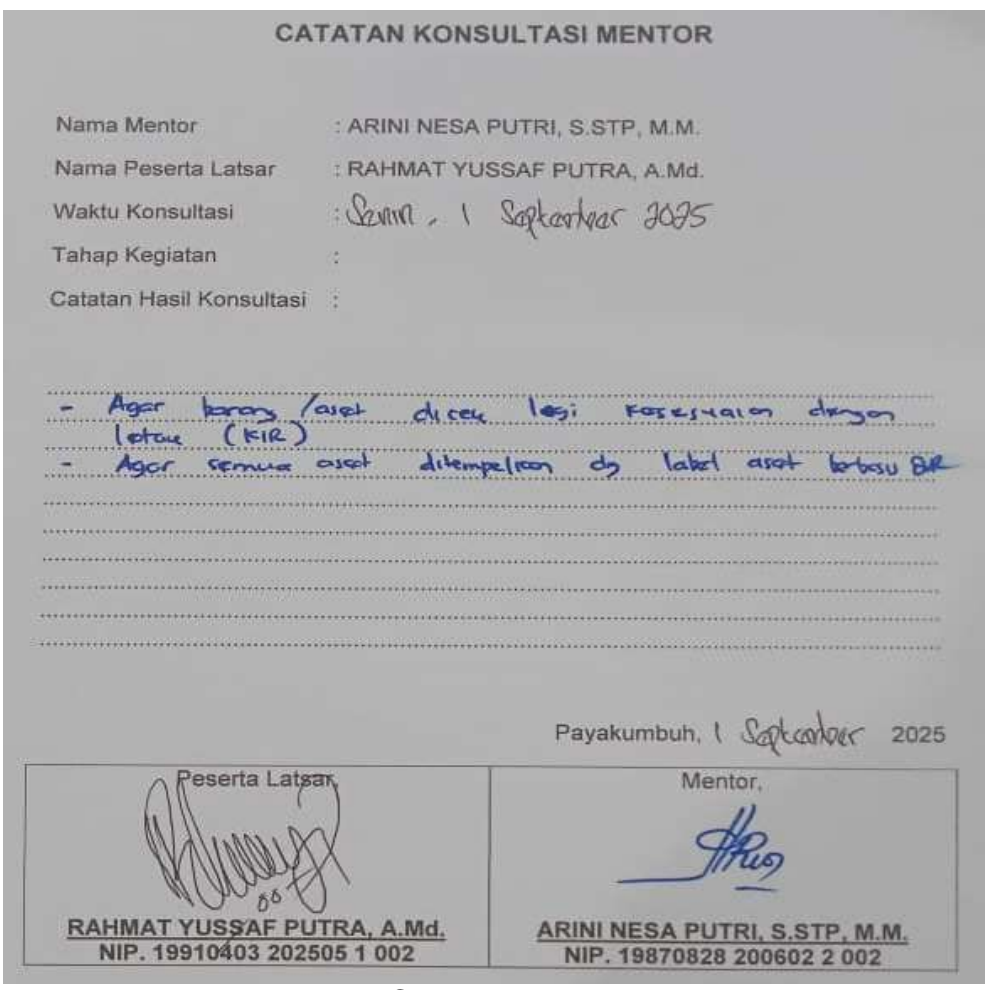 CATATAN KONSULTASI MENTOR
Nama Mentor : ARINI NESA PUTRI, S.STP, M.M.
Nama Peserta Latsar : RAHMAT YUSSAF PUTRA, A.Md.
Waktu Konsultasi : Senin, 1 September 2025
Tahap Kegiatan :
Catatan Hasil Konsultasi :
- Agar barang /aset dicek lagi kesesuaian dengan
letak (KIR)
- Agar semua aset ditempelkan dg label aset berbasis
Payakumbuh, 1 September 2025
Peserta Latsar, Mentor,
RAHMAT YUSSAF PUTRA, A.Md. ARINI NESA PUTRI, S.STP, M.M.
NIP. 19910403 202505 1 002 NIP. 19870828 200602 2 002